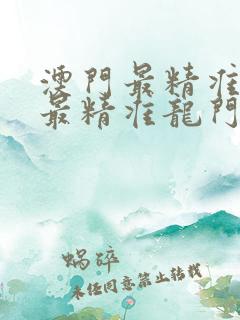 澳門最精准
最精准龍門
蝸碎
未经同意禁止转载